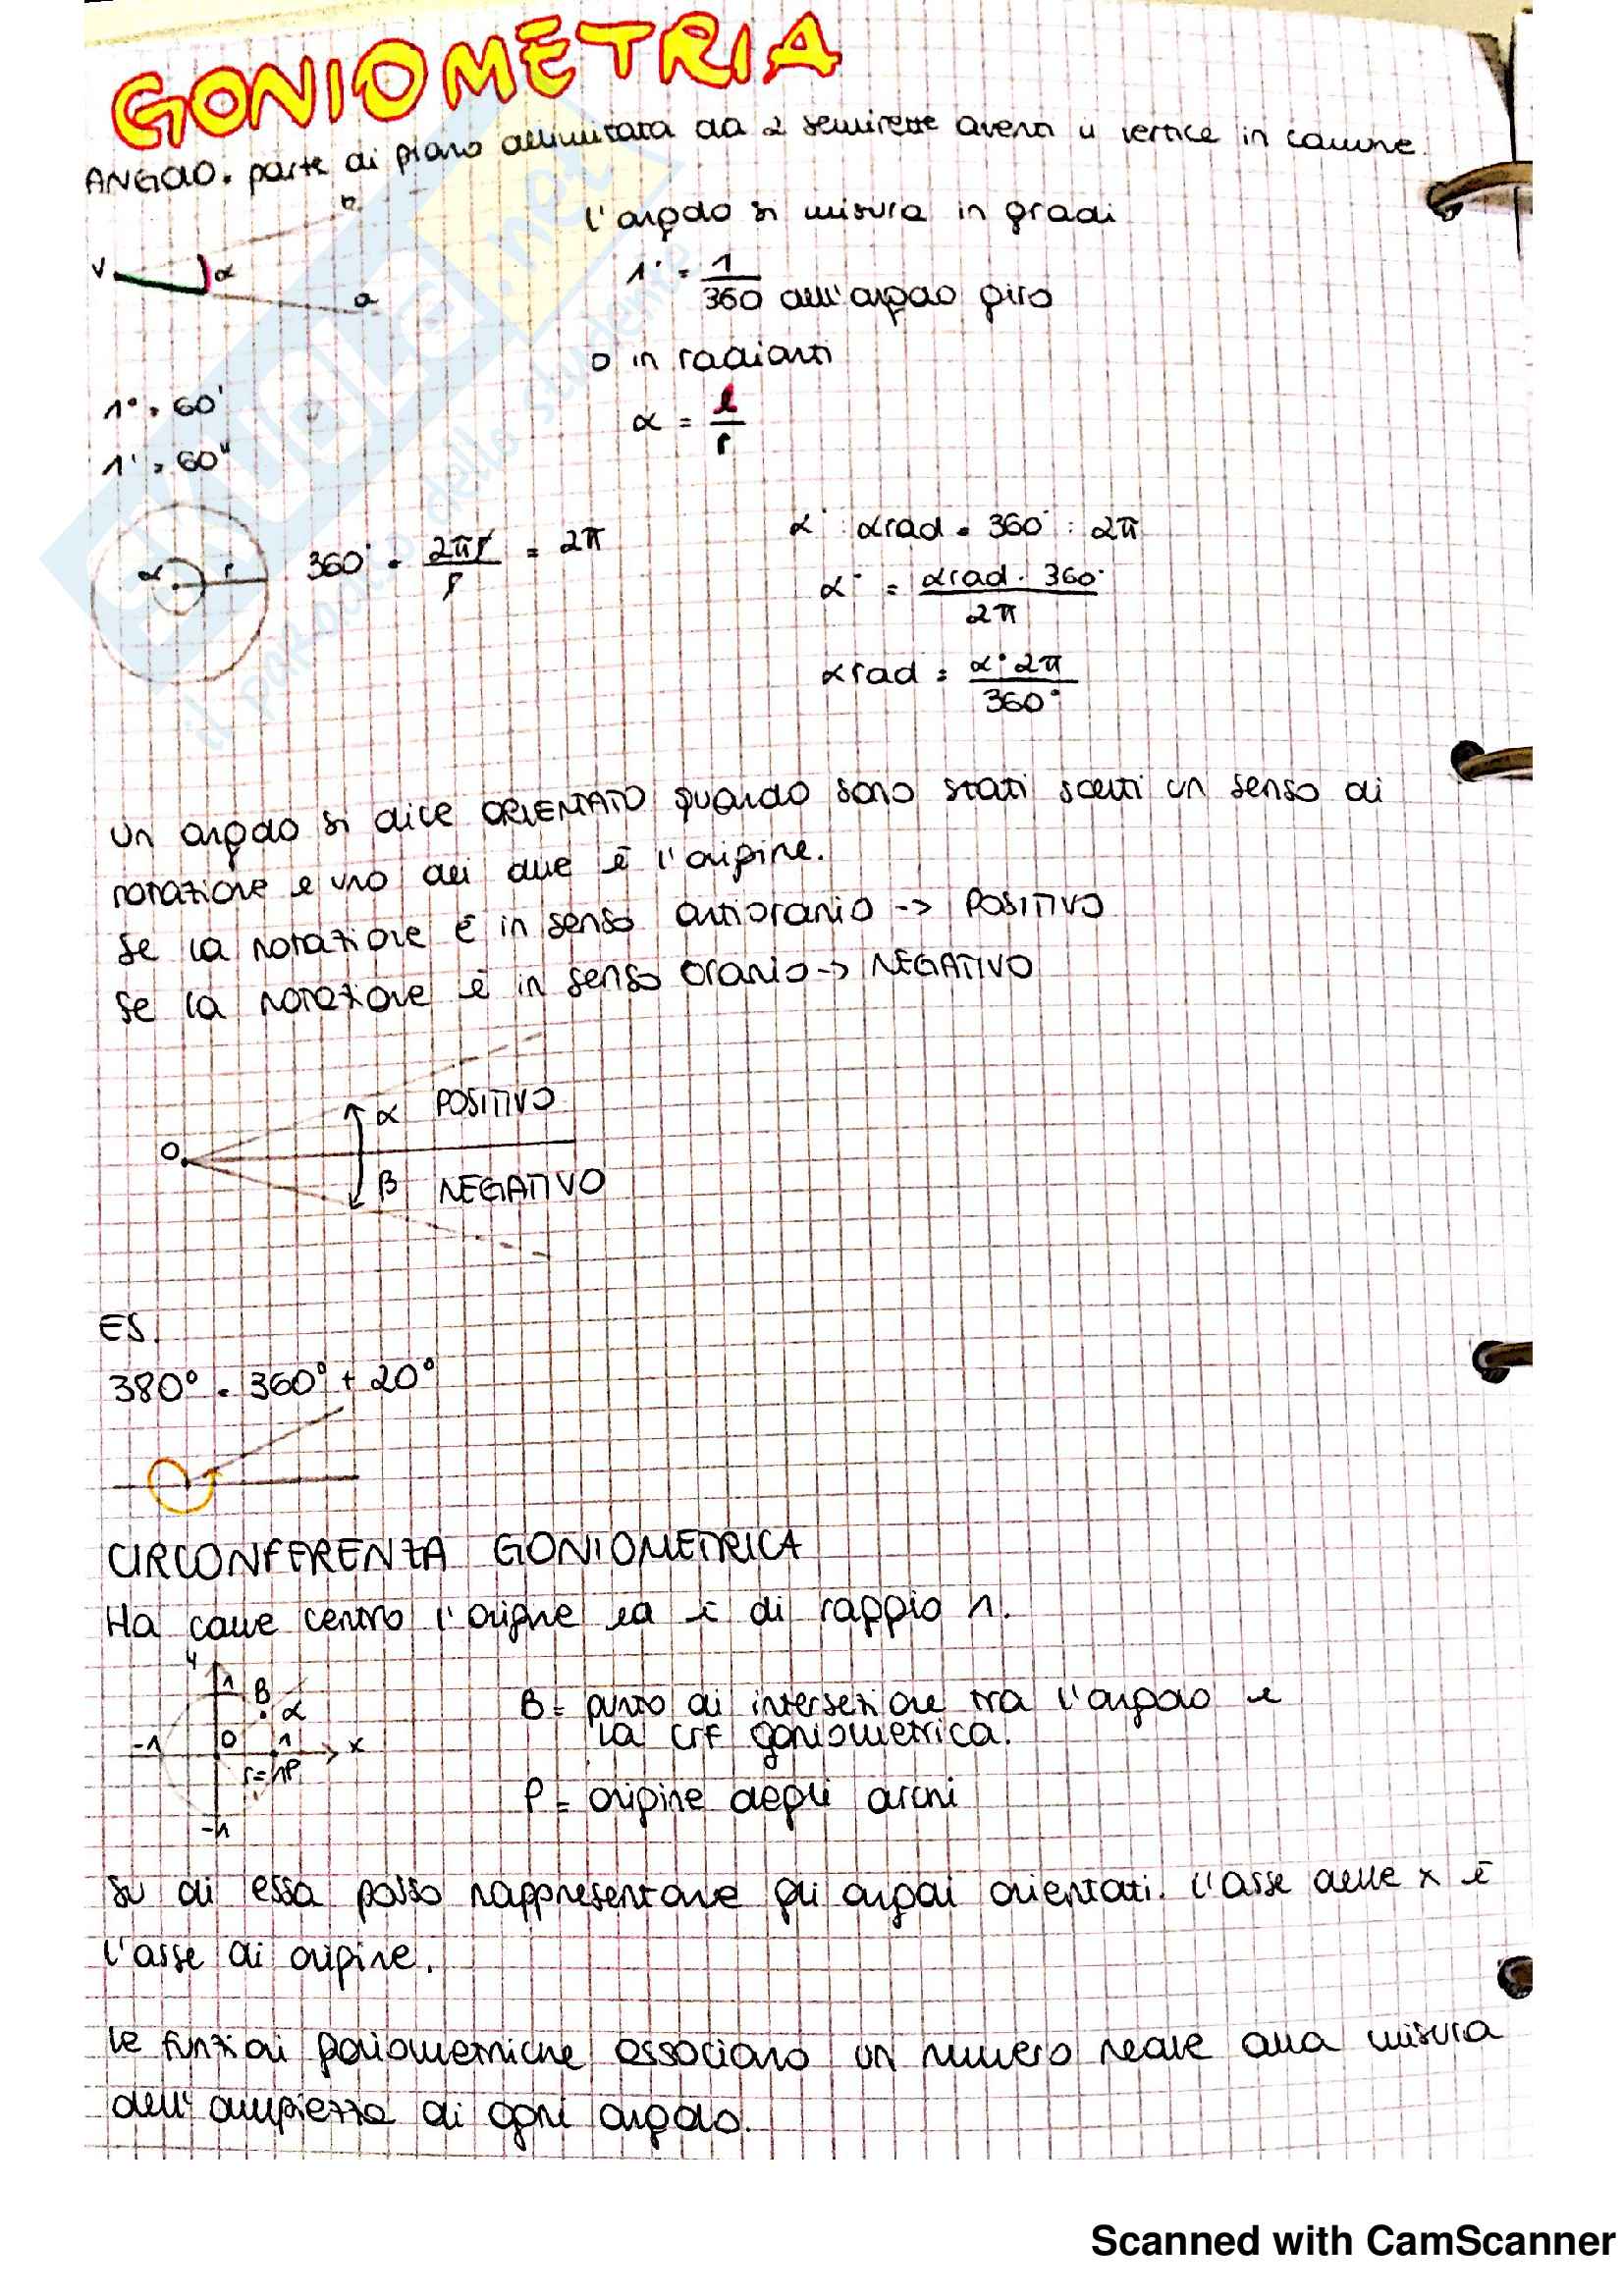 GONIOMETRIA
ANGOLO = parte di piano delimitata da 2 semirette aventi il vertice in comune.
b
l'angolo si misura in gradi
V α a
1° = 1/360 dell'angolo giro
o in radianti
1° = 60'
α = l/r
1' = 60"
α r 360° = 2πr/r = 2π
α° : αrad = 360° : 2π
α° = αrad · 360°/2π
αrad = α° · 2π/360°
Un angolo si dice ORIENTATO quando sono stati scelti un senso di
rotazione e uno dei due è l'origine.
Se la rotazione è in senso antiorario -> POSITIVO
Se la rotazione è in senso orario -> NEGATIVO
α POSITIVO
O
β NEGATIVO
ES.
380° = 360° + 20°
CIRCONFERENZA GONIOMETRICA
Ha come centro l'origine ed è di raggio 1.
y
1 B α
-1 O 1 x
r=1 P
-1
B = punto di intersezione tra l'angolo e
la crf goniometrica.
P = origine degli archi
Su di essa posso rappresentare gli angoli orientati. L'asse delle x è
l'asse di origine.
Le funzioni goniometriche associano un numero reale alla misura
dell'ampiezza di ogni angolo.
SKUOLA.net
il paradiso dello studente
Scanned with CamScanner